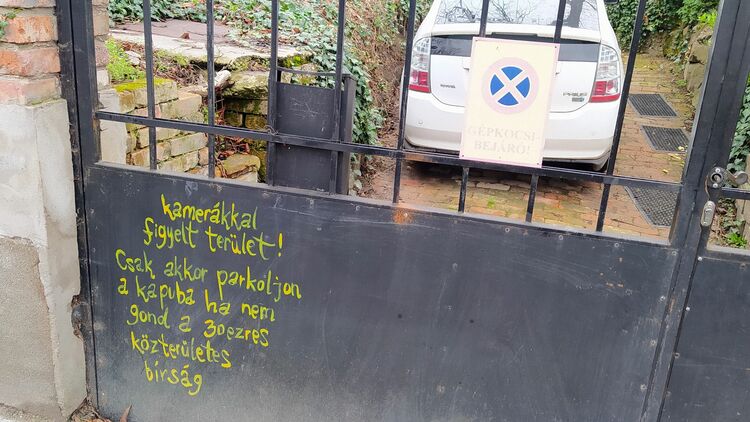 PRIUS
GÉPKOCSI-
BEJÁRÓ!
kamerákkal
figyelt terület!
Csak akkor parkoljon
a kapuba ha nem
gond a 30ezres
közterületes
bírság